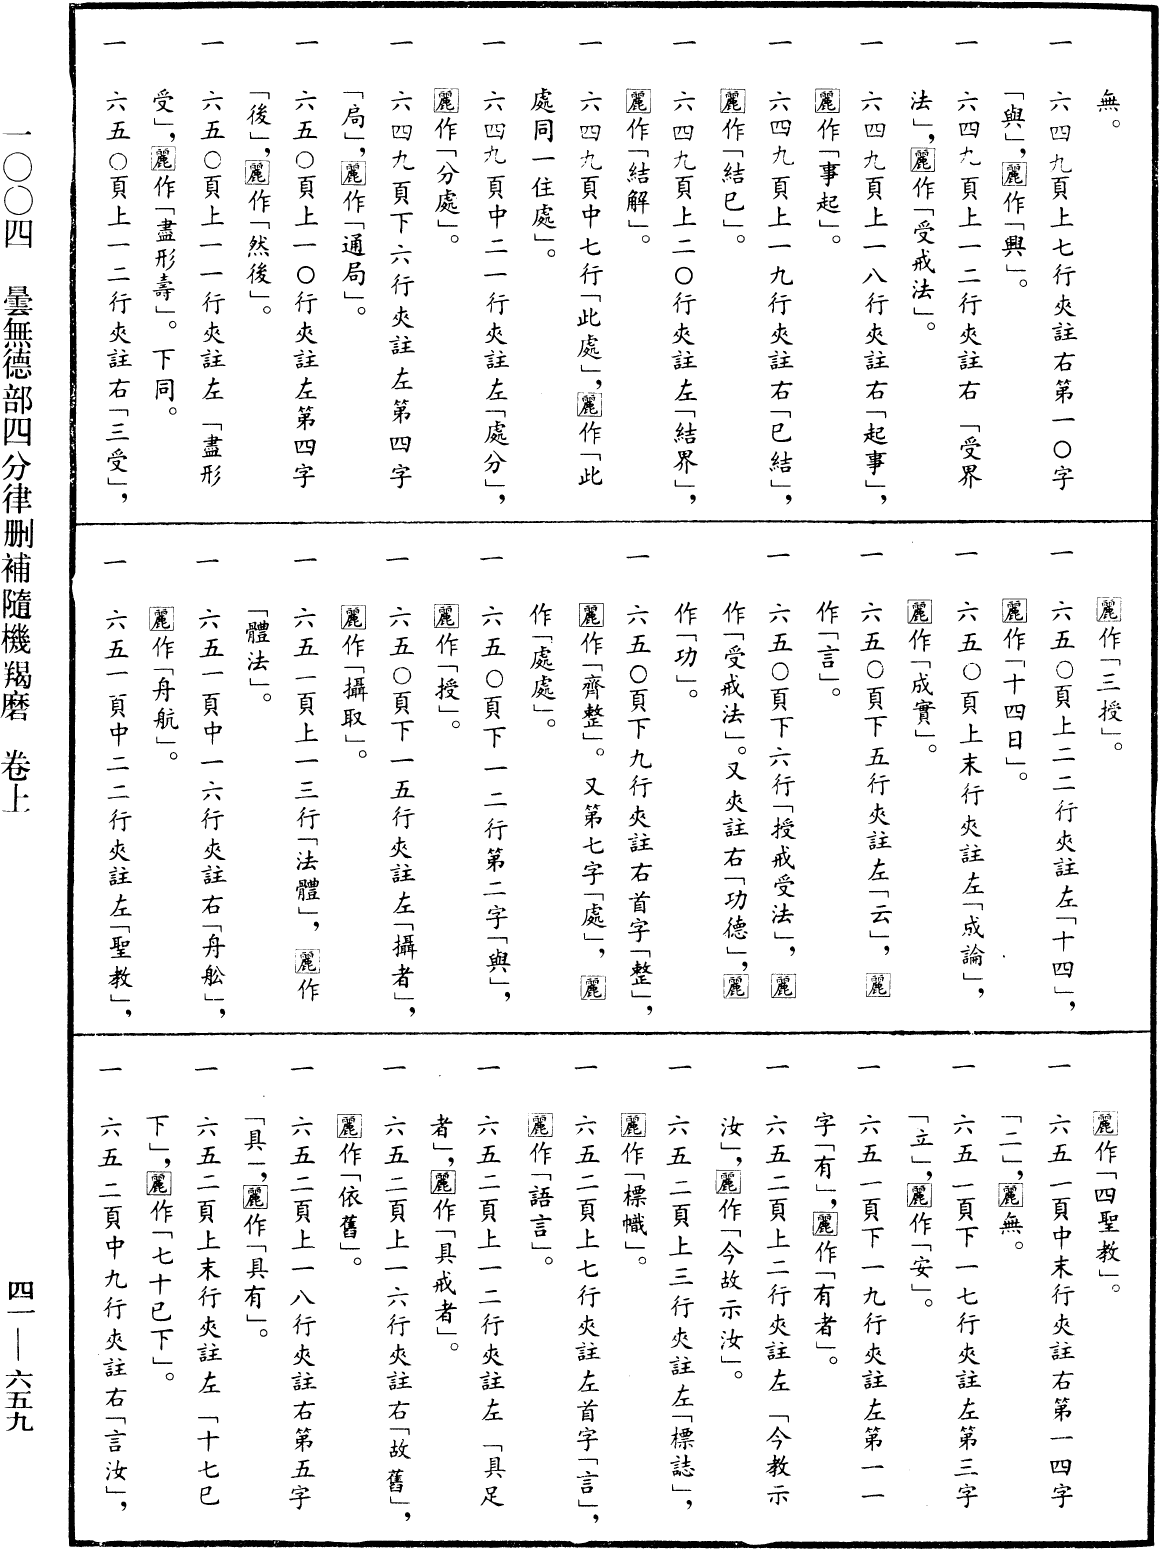 無。
一　六四九頁上七行夾註右第一〇字
「與」，麗作「興」。
一　六四九頁上一二行夾註右「受界
法」，麗作「受戒法」。
一　六四九頁上一八行夾註右「起事」，
麗作「事起」。
一　六四九頁上一九行夾註右「已結」，
麗作「結已」。
一　六四九頁上二〇行夾註左「結界」，
麗作「結解」。
一　六四九頁中七行「此處」，麗作「此
處同一住處」。
一　六四九頁中二一行夾註左「處分」，
麗作「分處」。
一　六四九頁下六行夾註左第四字
「局」，麗作「通局」。
一　六五〇頁上一〇行夾註左第四字
「後」，麗作「然後」。
一　六五〇頁上一一行夾註左「盡形
受」，麗作「盡形壽」。下同。
一　六五〇頁上一二行夾註右「三受」，
麗作「三授」。
一　六五〇頁上二二行夾註左「十四」，
麗作「十四日」。
一　六五〇頁上末行夾註左「成論」，
麗作「成實」。
一　六五〇頁下五行夾註左「云」，麗
作「言」。
一　六五〇頁下六行「授戒受法」，麗
作「受戒法」。又夾註右「功德」，麗
作「功」。
一　六五〇頁下九行夾註右首字「整」，
麗作「齊整」。又第七字「處」，麗
作「處處」。
一　六五〇頁下一二行第二字「與」，
麗作「授」。
一　六五〇頁下一五行夾註左「攝者」，
麗作「攝取」。
一　六五一頁上一三行「法體」，麗作
「體法」。
一　六五一頁中一六行夾註右「舟舩」，
麗作「舟航」。
一　六五一頁中二二行夾註左「聖教」，
麗作「四聖教」。
一　六五一頁中末行夾註右第一四字
「二」，麗無。
一　六五一頁下一七行夾註左第三字
「立」，麗作「安」。
一　六五一頁下一九行夾註左第一一
字「有」，麗作「有者」。
一　六五二頁上二行夾註左「今教示
汝」，麗作「今故示汝」。
一　六五二頁上三行夾註左「標誌」，
麗作「標幟」。
一　六五二頁上七行夾註左首字「言」，
麗作「語言」。
一　六五二頁上一二行夾註左「具足
者」，麗作「具戒者」。
一　六五二頁上一六行夾註右「故舊」，
麗作「依舊」。
一　六五二頁上一八行夾註右第五字
「具」，麗作「具有」。
一　六五二頁上末行夾註左「十七已
下」，麗作「七十已下」。
一　六五二頁中九行夾註右「言汝」，
一〇〇四　曇無德部四分律刪補隨機羯磨　卷上
四一——六五九